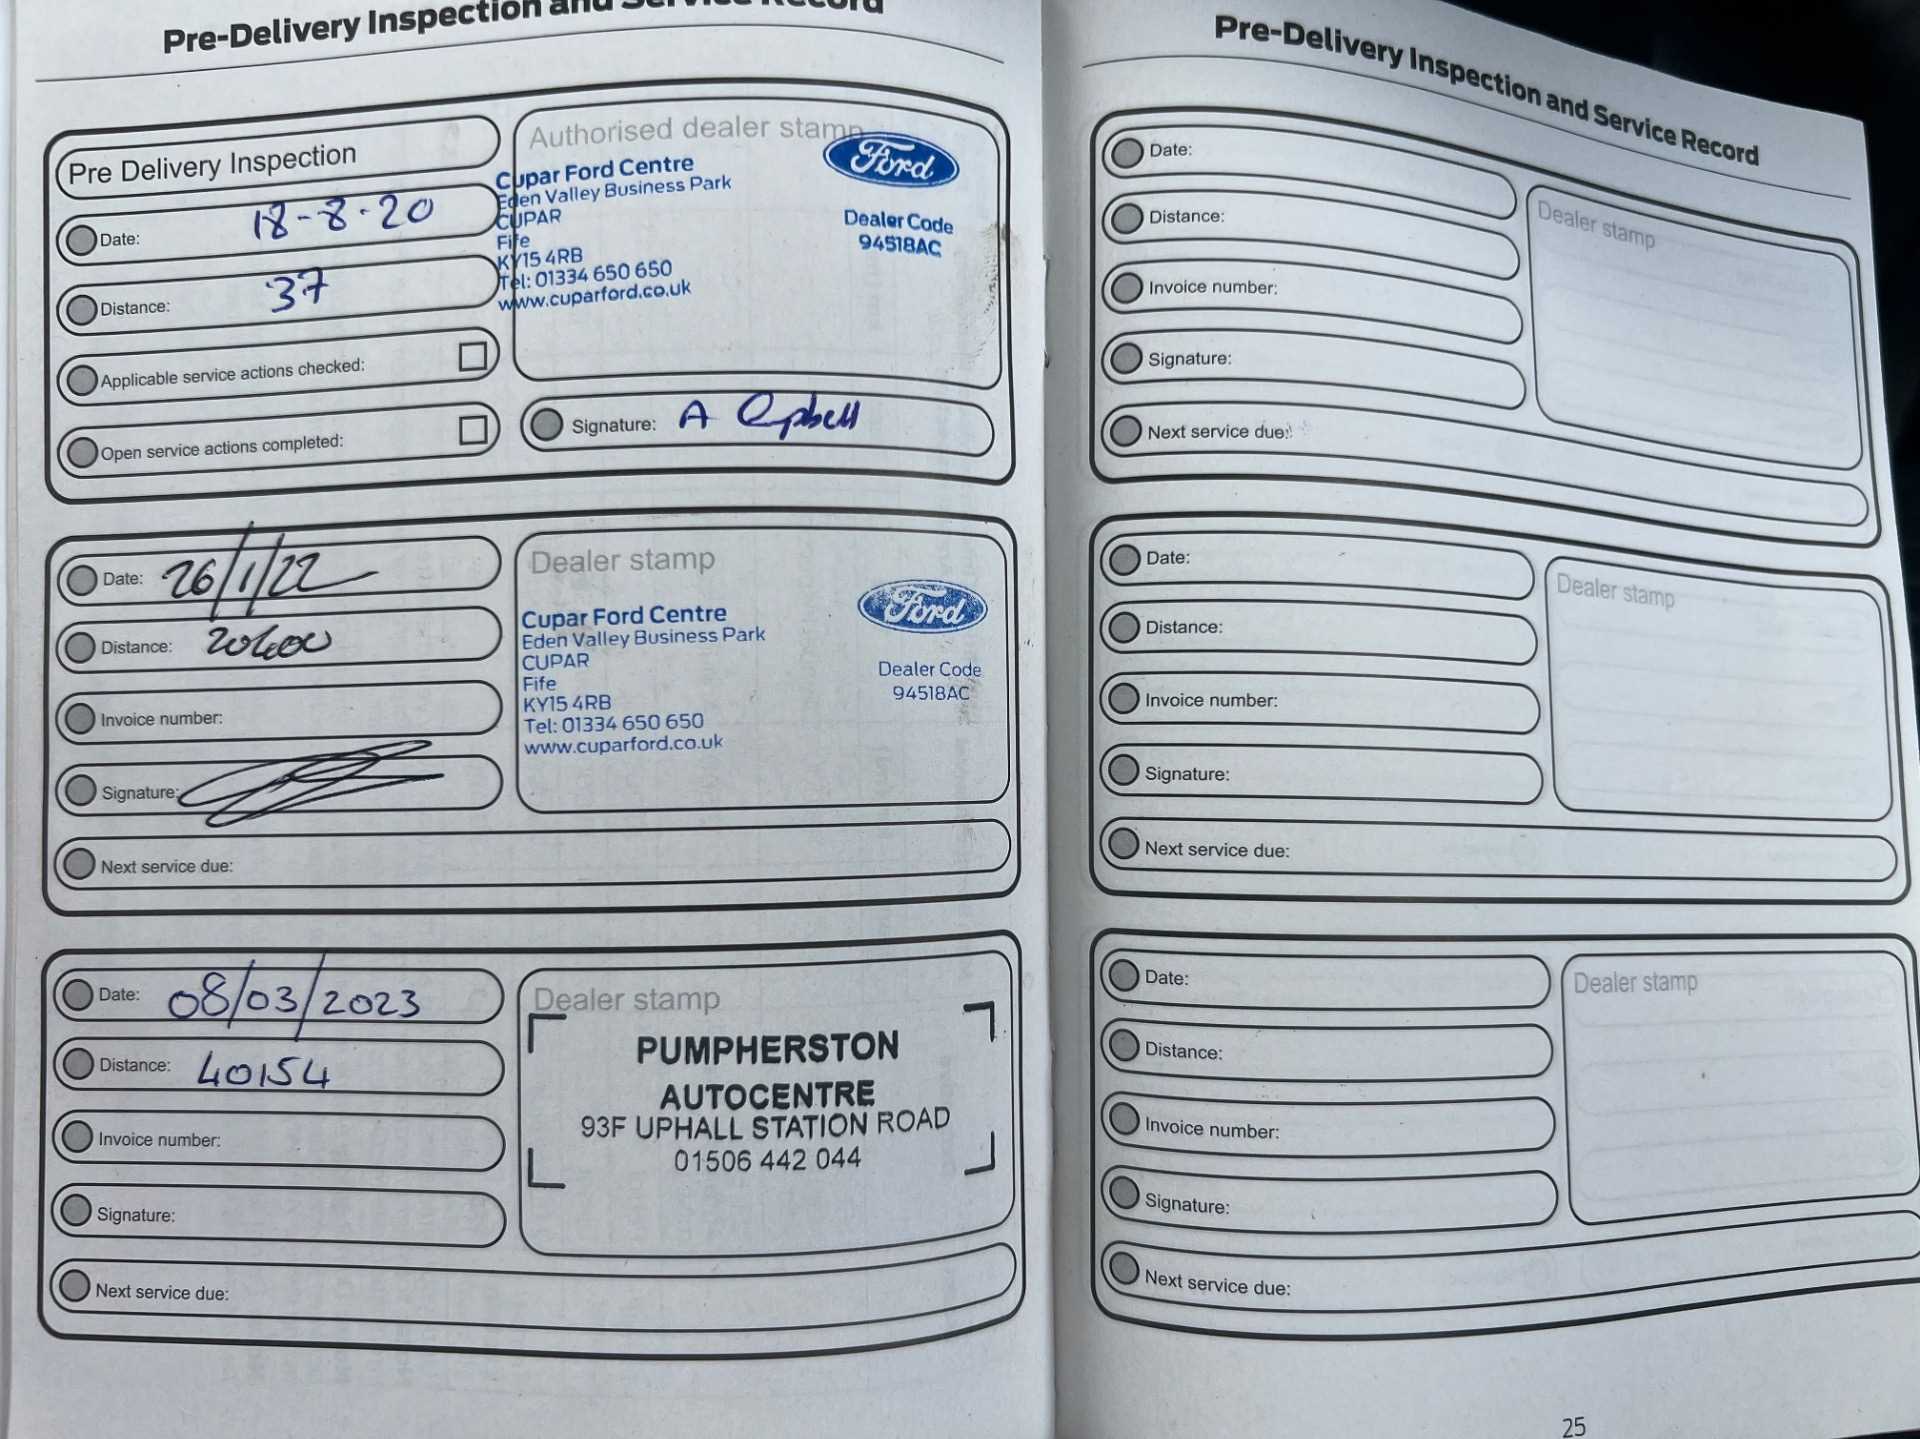 Pre-Delivery Inspection and Service Record
Pre Delivery Inspection
Date: 18-8-20
Distance: 37
Applicable service actions checked:
Open service actions completed:
Authorised dealer stamp
Cupar Ford Centre
Eden Valley Business Park
CUPAR
Fife
KY15 4RB
Tel: 01334 650 650
www.cuparford.co.uk
Ford
Dealer Code
94518AC
Signature: A
Date: 26/1/22
Distance:
Invoice number:
Signature:
Next service due:
Dealer stamp
Cupar Ford Centre
Eden Valley Business Park
CUPAR
Fife
KY15 4RB
Tel: 01334 650 650
www.cuparford.co.uk
Ford
Dealer Code
94518AC
Date: 08/03/2023
Distance: 40154
Invoice number:
Signature:
Next service due:
Dealer stamp
PUMPHERSTON
AUTOCENTRE
93F UPHALL STATION ROAD
01506 442 044
Pre-Delivery Inspection and Service Record
Date:
Distance:
Invoice number:
Signature:
Next service due:
Dealer stamp
Date:
Distance:
Invoice number:
Signature:
Next service due:
Dealer stamp
Date:
Distance:
Invoice number:
Signature:
Next service due:
Dealer stamp
25